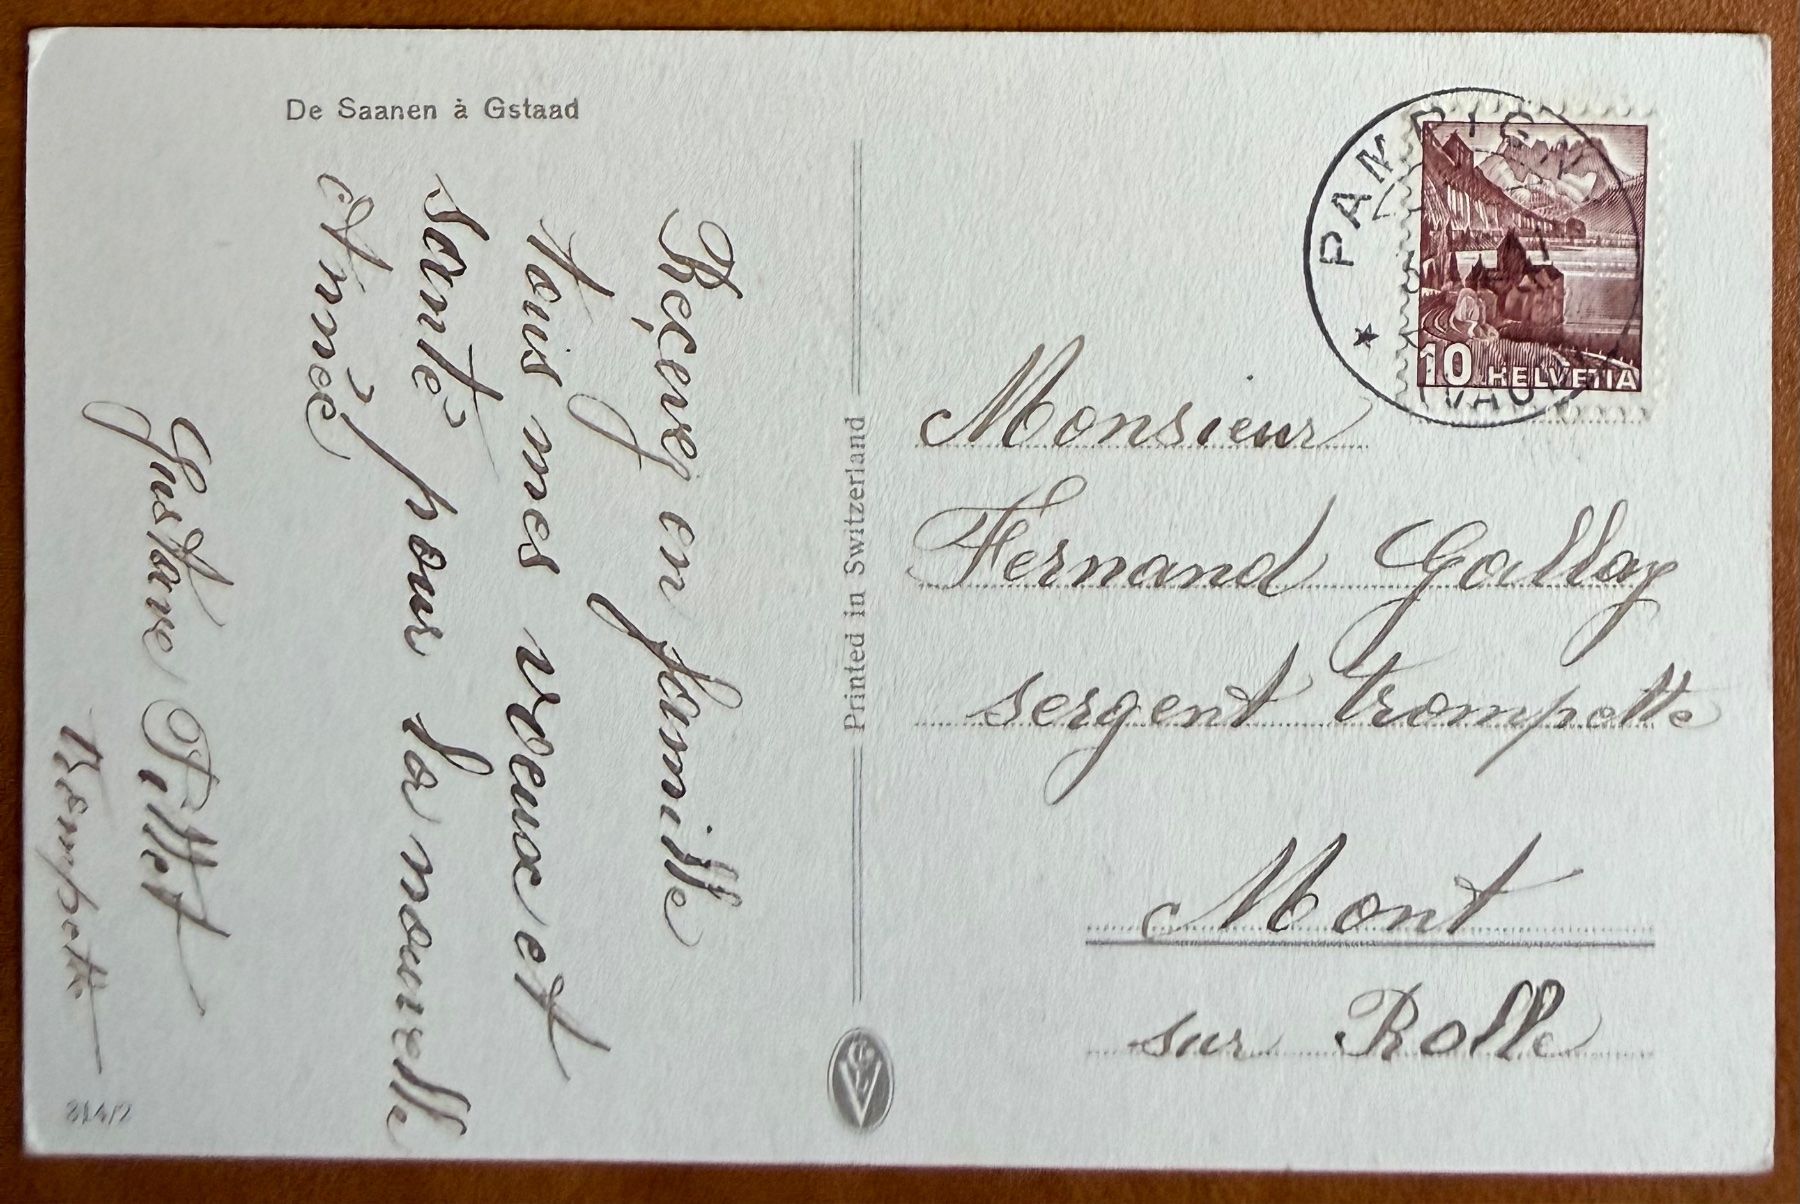 De Saanen à Gstaad
Reçevez en famille
tous mes voeux et
santé pour la nouvelle
Année
Gustave Pillet
Trompette
814/2
Printed in Switzerland
PAMPIGNY
(VAUD)
10 HELVETIA
Monsieur
Fernand Gallay
sergent trompette
Mont
sur Rolle